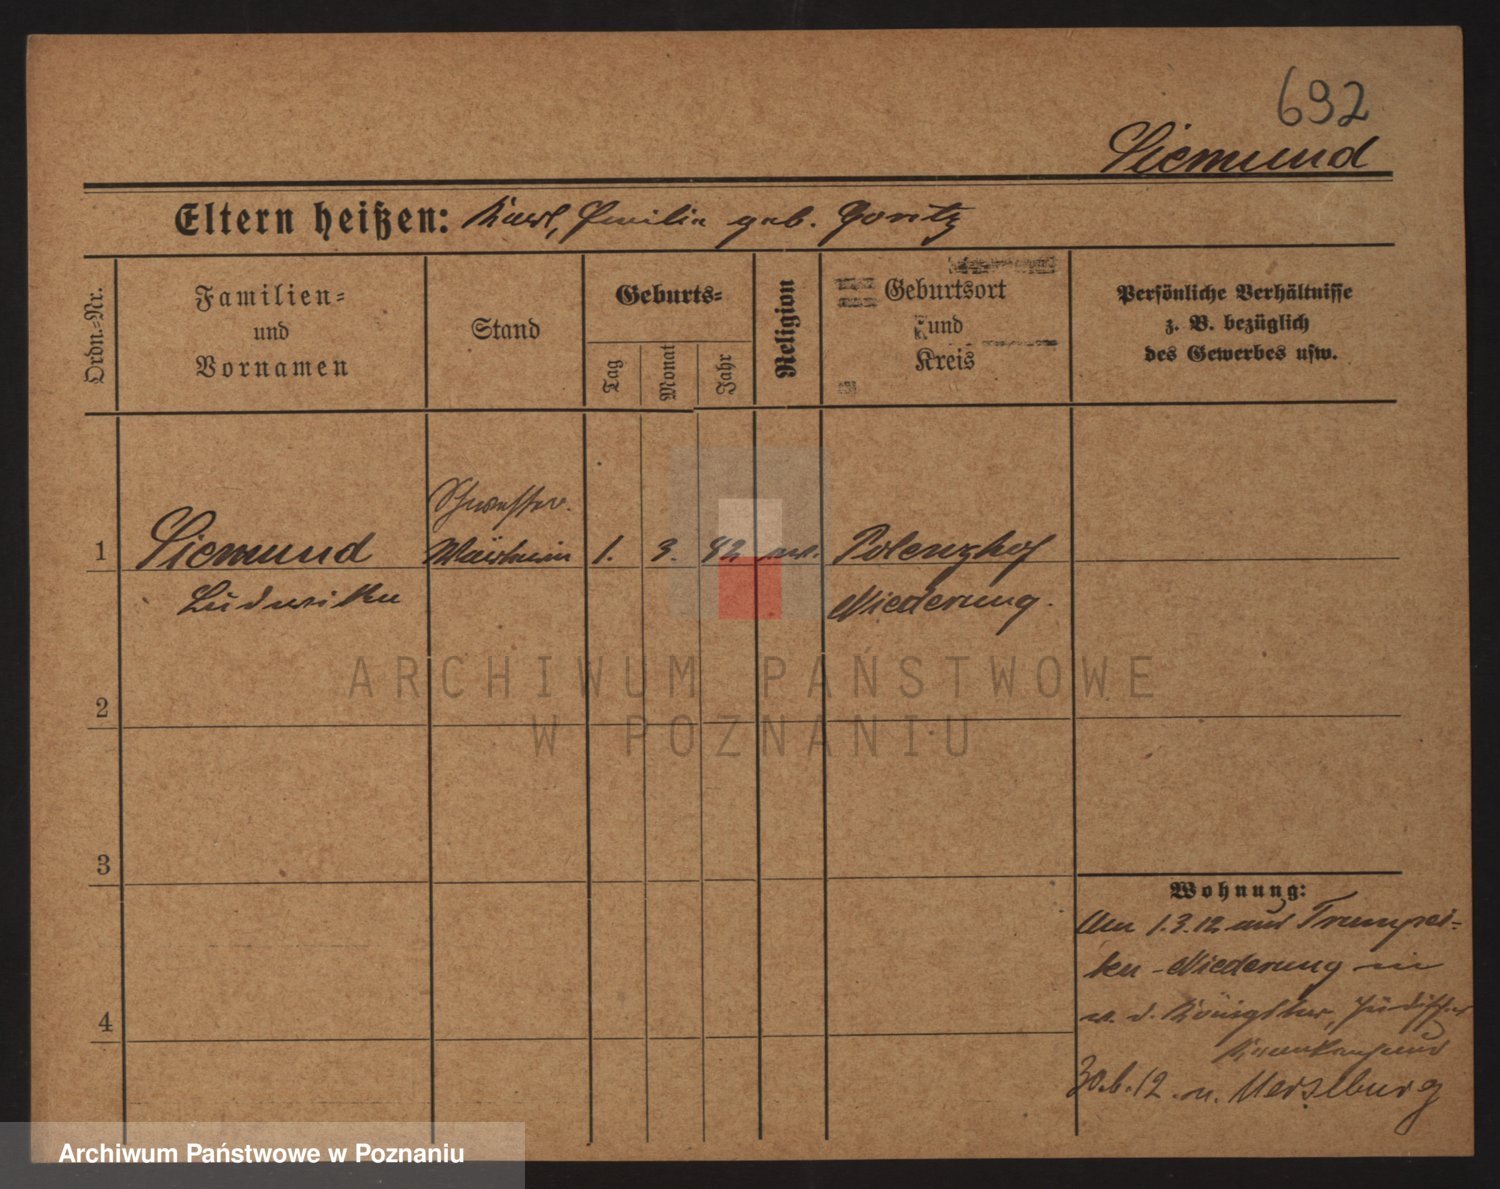 692
Siemund
Eltern heißen: Karl, Emilie geb. Goritz
Ordn.-Nr.
Familien-
und
Vornamen
Stand
Geburts-
Tag
Monat
Jahr
Religion
Geburtsort
und
Kreis
Persönliche Verhältnisse
z. B. bezüglich
des Gewerbes usw.
Schwester.
1 Siemund 1. 3. 82 ev. Polenzhof
Ludwika Niederung.
2
3
4
Wohnung:
Am 1.3.12 aus Trumpei-
ten-Niederung
Jüdisches
Krankenhaus
30.6.12. n. Merseburg
ARCHIWUM PAŃSTWOWE
W POZNANIU
Archiwum Państwowe w Poznaniu